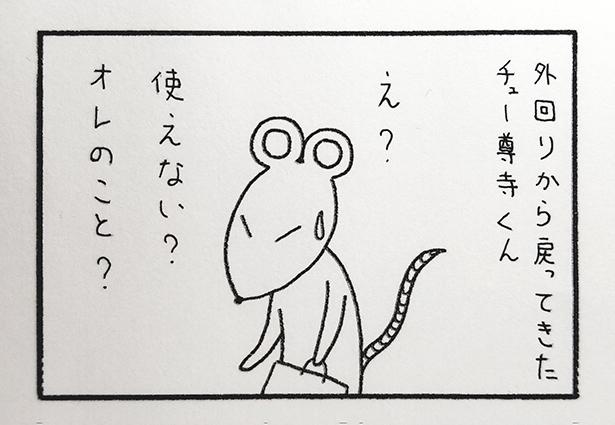 外回りから戻ってきた
チュー尊寺くん
え？
使えない？
オレのこと？